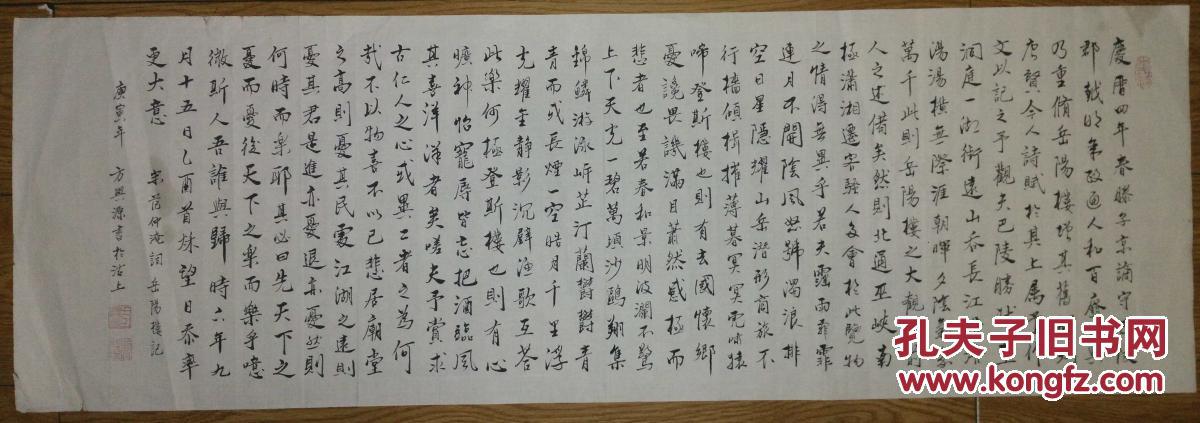 慶曆四年春滕子京謫守
郡越明年政通人和百廢
乃重脩岳陽樓增其舊
唐賢今人詩賦於其上屬予作
文以記之予觀夫巴陵勝狀
洞庭一湖銜遠山吞長江
湯湯橫無際涯朝暉夕陰氣象
萬千此則岳陽樓之大觀也前
人之述備矣然則北通巫峽南
極瀟湘遷客騷人多會於此覽物
之情得無異乎若夫霪雨霏霏
連月不開陰風怒號濁浪排
空日星隱耀山岳潛形商旅不
行檣傾楫摧薄暮冥冥虎嘯猿
啼登斯樓也則有去國懷鄉
憂讒畏譏滿目蕭然感極而
悲者也至若春和景明波瀾不驚
上下天光一碧萬頃沙鷗翔集
錦鱗游泳岸芷汀蘭鬱鬱青
青而或長煙一空皓月千里浮
光耀金靜影沉璧漁歌互答
此樂何極登斯樓也則有心
曠神怡寵辱皆忘把酒臨風
其喜洋洋者矣嗟夫予嘗求
古仁人之心或異二者之為何
哉不以物喜不以己悲居廟堂
之高則憂其民處江湖之遠則
憂其君是進亦憂退亦憂然則
何時而樂耶其必曰先天下之
憂而憂後天下之樂而樂乎噫
微斯人吾誰與歸 時六年九
月十五日乙酉首秌望日恭率
更大意 宋范仲淹詞岳陽樓記
庚寅年 方興源書於沽上
孔夫子旧书网
www.kongfz.com